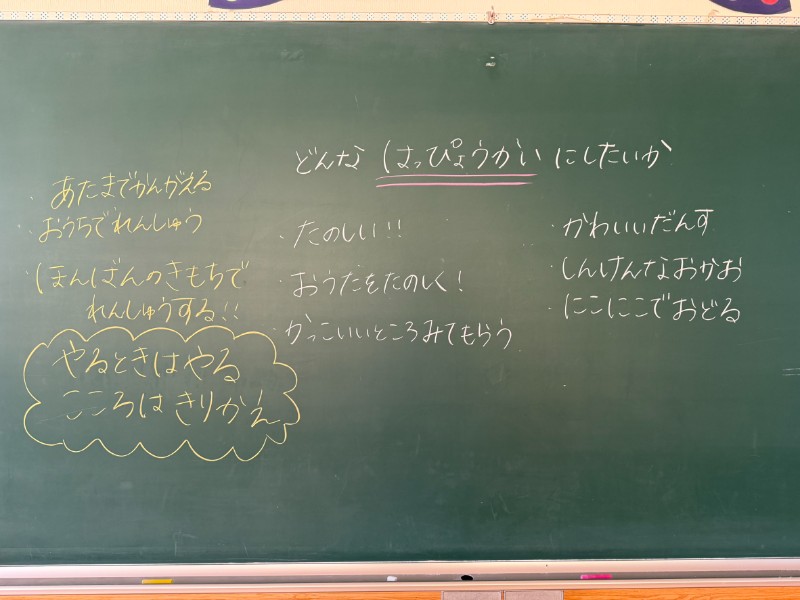 どんな はっぴょうかい にしたいか
・あたまでかんがえる
・おうちでれんしゅう
・ほんばんのきもちで
れんしゅうする!!
やるときはやる
こころは きりかえ
・たのしい!!
・おうたをたのしく!
・かっこいいところみてもらう
・かわいいだんす
・しんけんなおかお
・にこにこでおどる